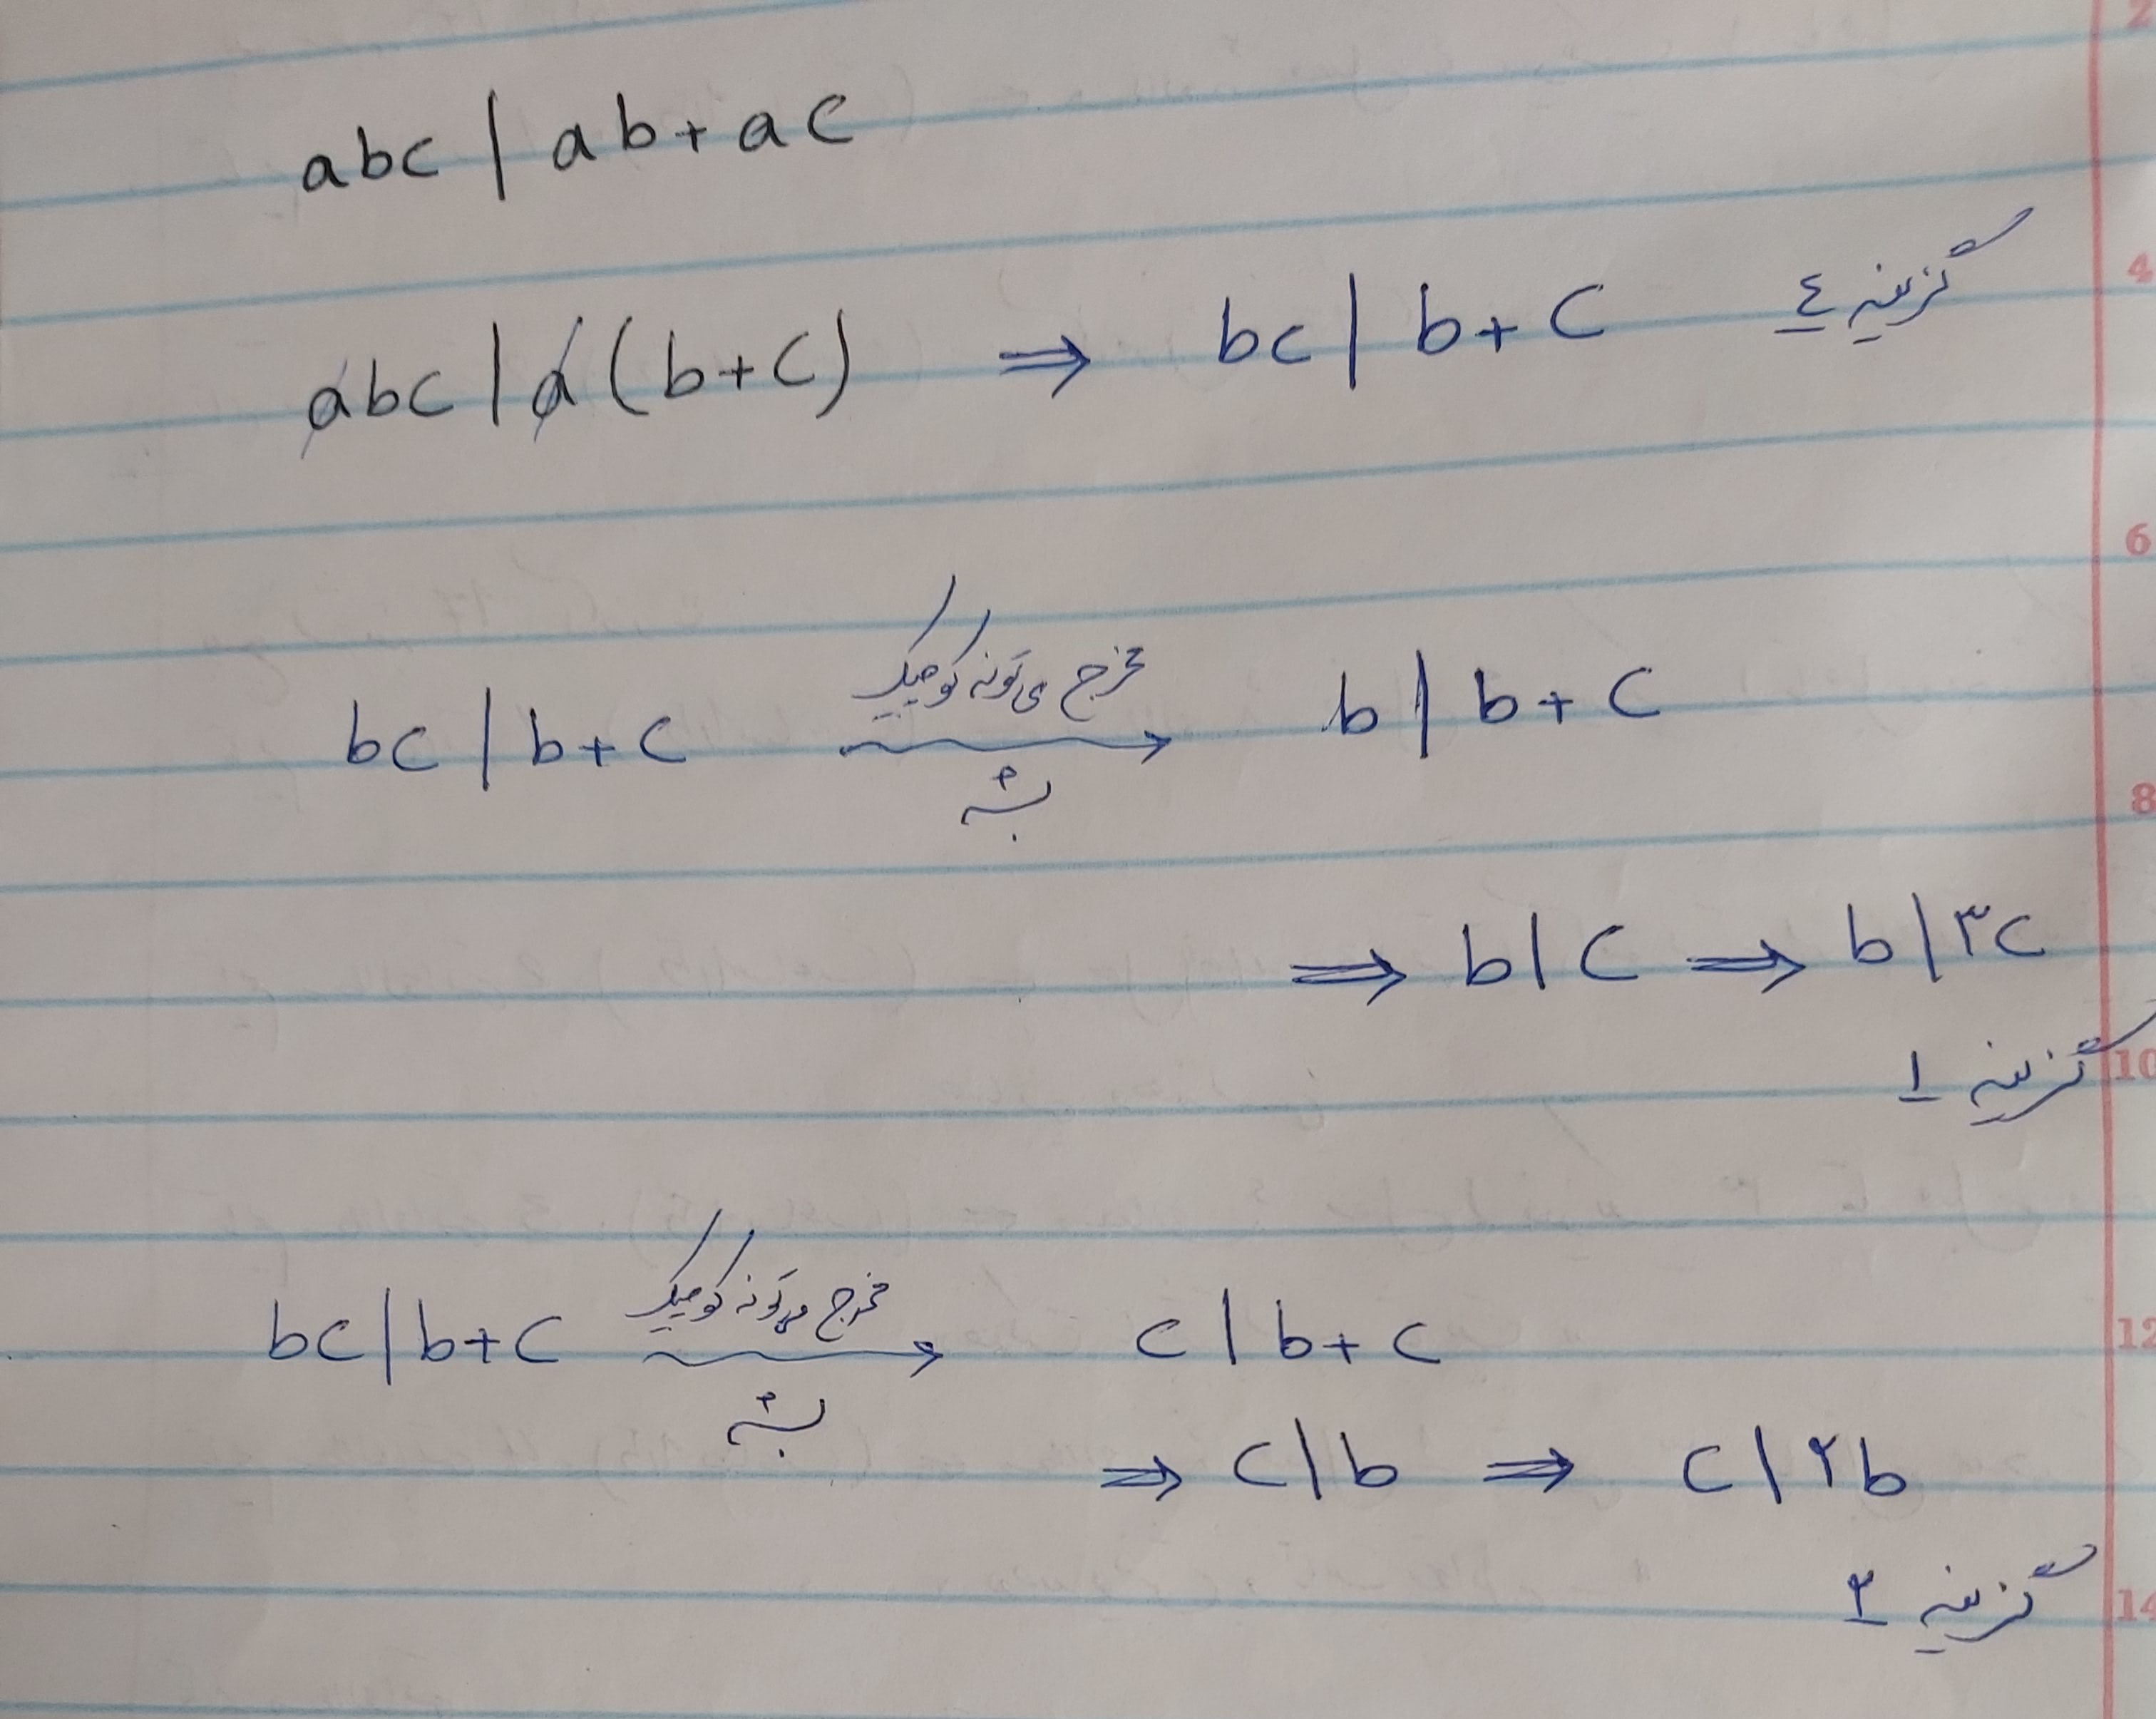 abc | ab+ac
abc | a(b+c) ⇒ bc | b+c گزینه ٤
bc | b+c مخرج می‌تونه کوچیک بشه b | b+c
⇒ b | c ⇒ b | ۳c
گزینه ۱
bc | b+c مخرج می‌تونه کوچیک بشه c | b+c
⇒ c | b ⇒ c | ۲b
گزینه ۲
2
4
6
8
10
12
14